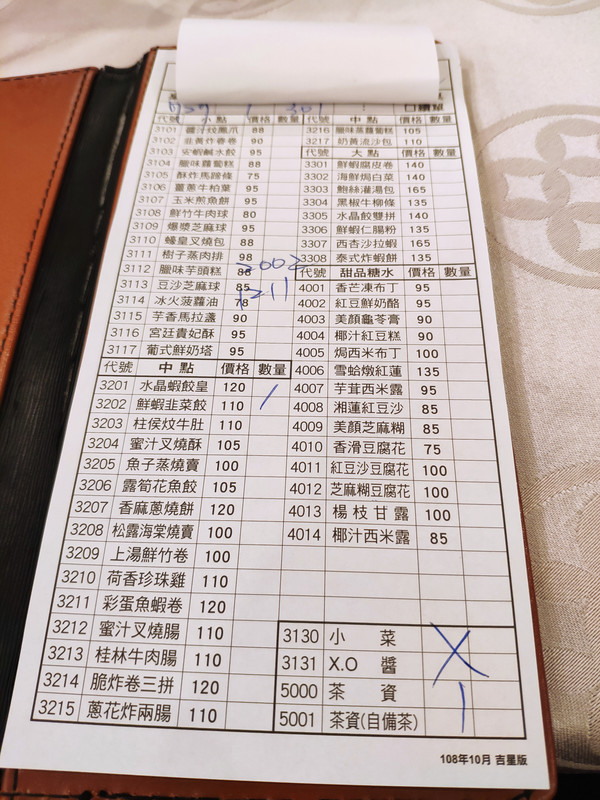 1 301 口續單
代號 小點 價格 數量
3101 醬汁炆鳳爪 88
3102 韭黃炸春卷 90
3103 安蝦鹹水餃 95
3104 臘味蘿蔔糕 88
3105 酥炸馬蹄條 75
3106 薑蔥牛柏葉 95
3107 玉米煎魚餅 95
3108 鮮竹牛肉球 80
3109 爆漿芝麻球 95
3110 蠔皇叉燒包 88
3111 樹子蒸肉排 98
3112 臘味芋頭糕 88
3113 豆沙芝麻球 85
3114 冰火菠蘿油 78
3115 芋香馬拉盞 90
3116 宮廷貴妃酥 95
3117 葡式鮮奶塔 95
3002
1211
代號 中點 價格 數量
3201 水晶蝦餃皇 120
3202 鮮蝦韭菜餃 110 /
3203 柱侯炆牛肚 110
3204 蜜汁叉燒酥 105
3205 魚子蒸燒賣 100
3206 露筍花魚餃 105
3207 香麻蔥燒餅 120
3208 松露海棠燒賣 100
3209 上湯鮮竹卷 100
3210 荷香珍珠雞 110
3211 彩蛋魚蝦卷 120
3212 蜜汁叉燒腸 110
3213 桂林牛肉腸 110
3214 脆炸卷三拼 120
3215 蔥花炸兩腸 110
代號 中點 價格 數量
3216 臘味蒸蘿蔔糕 105
3217 奶黃流沙包 110
代號 大點 價格 數量
3301 鮮蝦腐皮卷 140
3302 海鮮焗白菜 140
3303 鮑絲灌湯包 165
3304 黑椒牛柳條 135
3305 水晶餃雙拼 140
3306 鮮蝦仁腸粉 135
3307 西杏沙拉蝦 165
3308 泰式炸蝦餅 135
代號 甜品糖水 價格 數量
4001 香芒凍布丁 95
4002 紅豆鮮奶酪 95
4003 美顏龜苓膏 90
4004 椰汁紅豆糕 90
4005 焗西米布丁 100
4006 雪蛤燉紅蓮 135
4007 芋茸西米露 95
4008 湘蓮紅豆沙 85
4009 美顏芝麻糊 85
4010 香滑豆腐花 75
4011 紅豆沙豆腐花 100
4012 芝麻糊豆腐花 100
4013 楊枝甘露 100
4014 椰汁西米露 85
3130 小菜 X
3131 X.O 醬
5000 茶資 1
5001 茶資(自備茶)
108年10月 吉星版